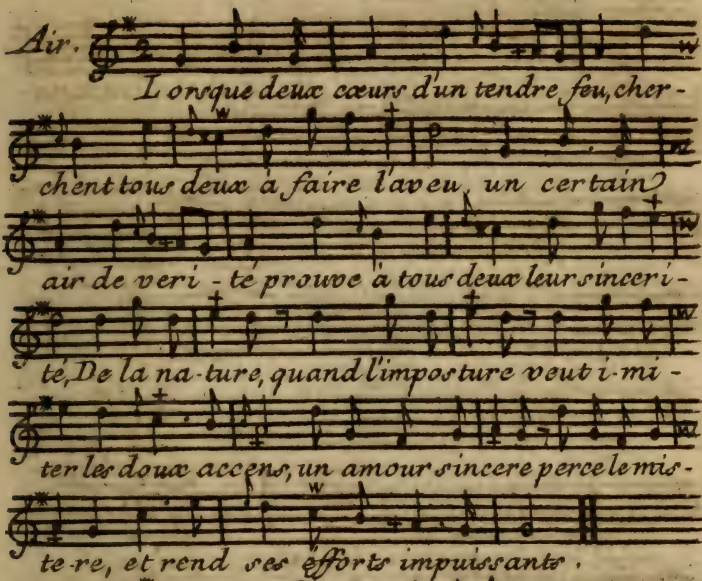 Air.
Lorsque deux cœurs d'un tendre feu, cher-
chent tous deux à faire l'aveu, un certain
air de veri - té prouve à tous deux leur sinceri -
té, De la na-ture, quand l'imposture veut i-mi -
ter les doux accens, un amour sincere perce le mis -
te-re, et rend ses éfforts impuissants.